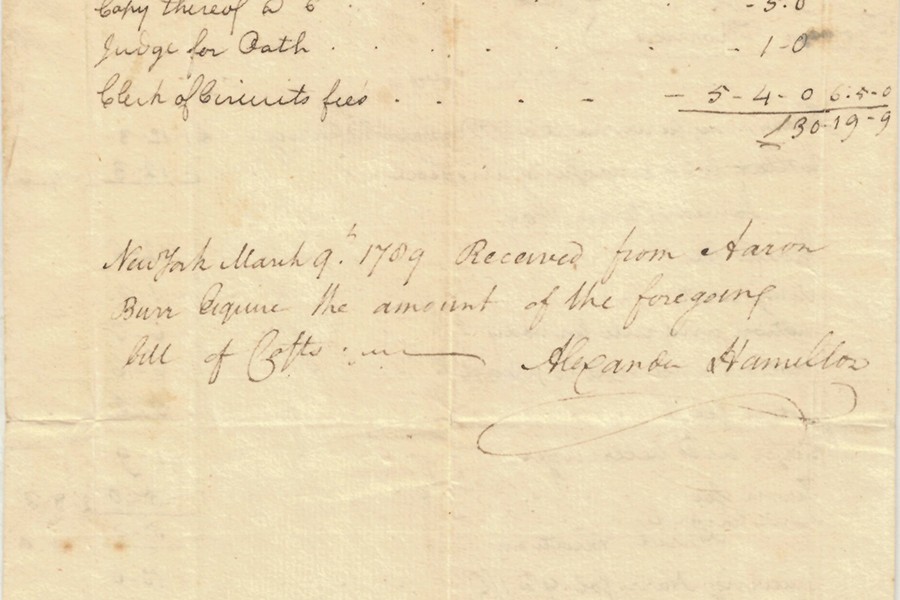 Copy thereof - 5.0
Judge for Oath . . . . . . - 1-0
Clerk of Circuits fees . . . - - 5-4-0 6.5-0
£130-19-9
New York March 9.h 1789 Received from Aaron
Burr Esquire the amount of the foregoing
bill of Costs
Alexander Hamilton